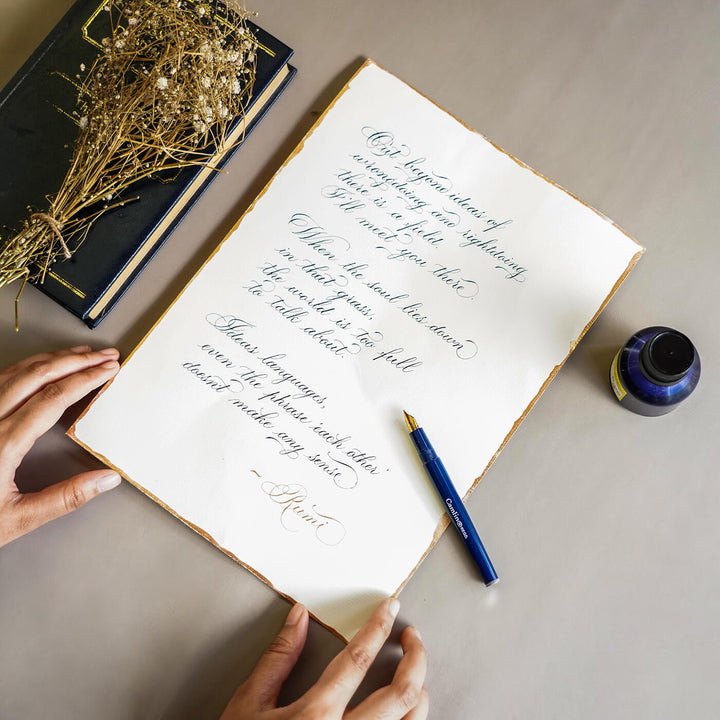 Out beyond ideas of
wrongdoing and rightdoing
there is a field.
I'll meet you there
When the soul lies down
in that grass,
the world is too full
to talk about.
Ideas languages,
even the phrase 'each other'
doesn't make any sense
~ Rumi
Camlin